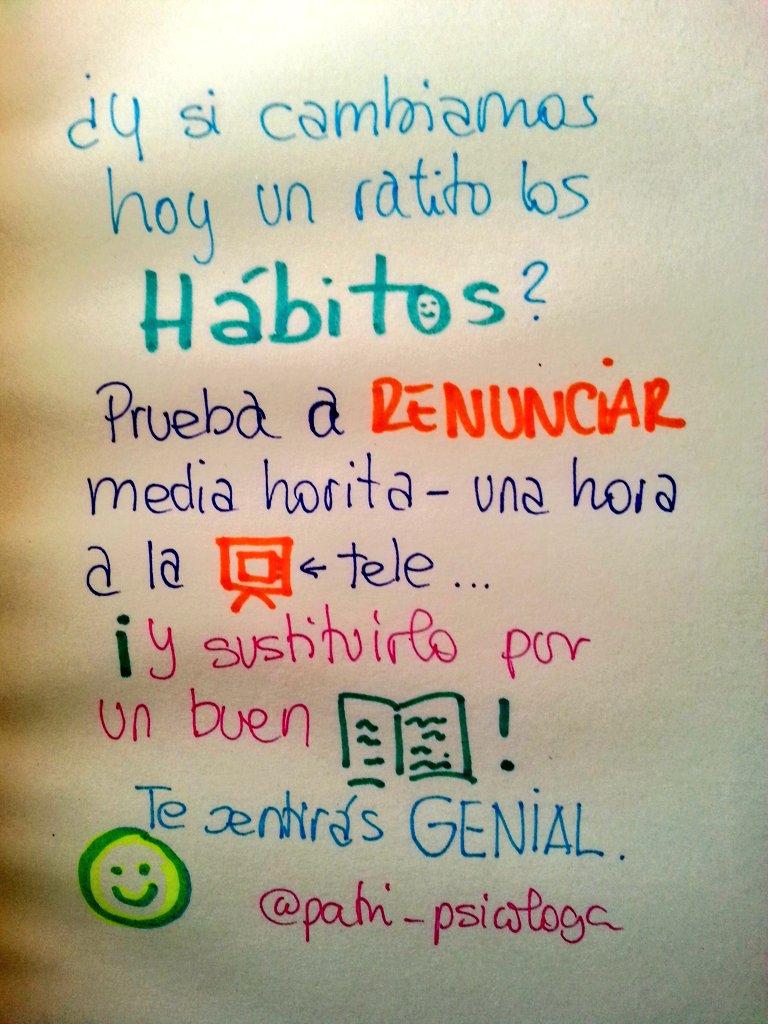 ¿Y si cambiamos
hoy un ratito los
Hábitos?
Prueba a RENUNCIAR
media horita - una hora
a la ← tele...
¡Y sustituirlo por
un buen !
Te sentirás GENIAL.
@patri_psicologa